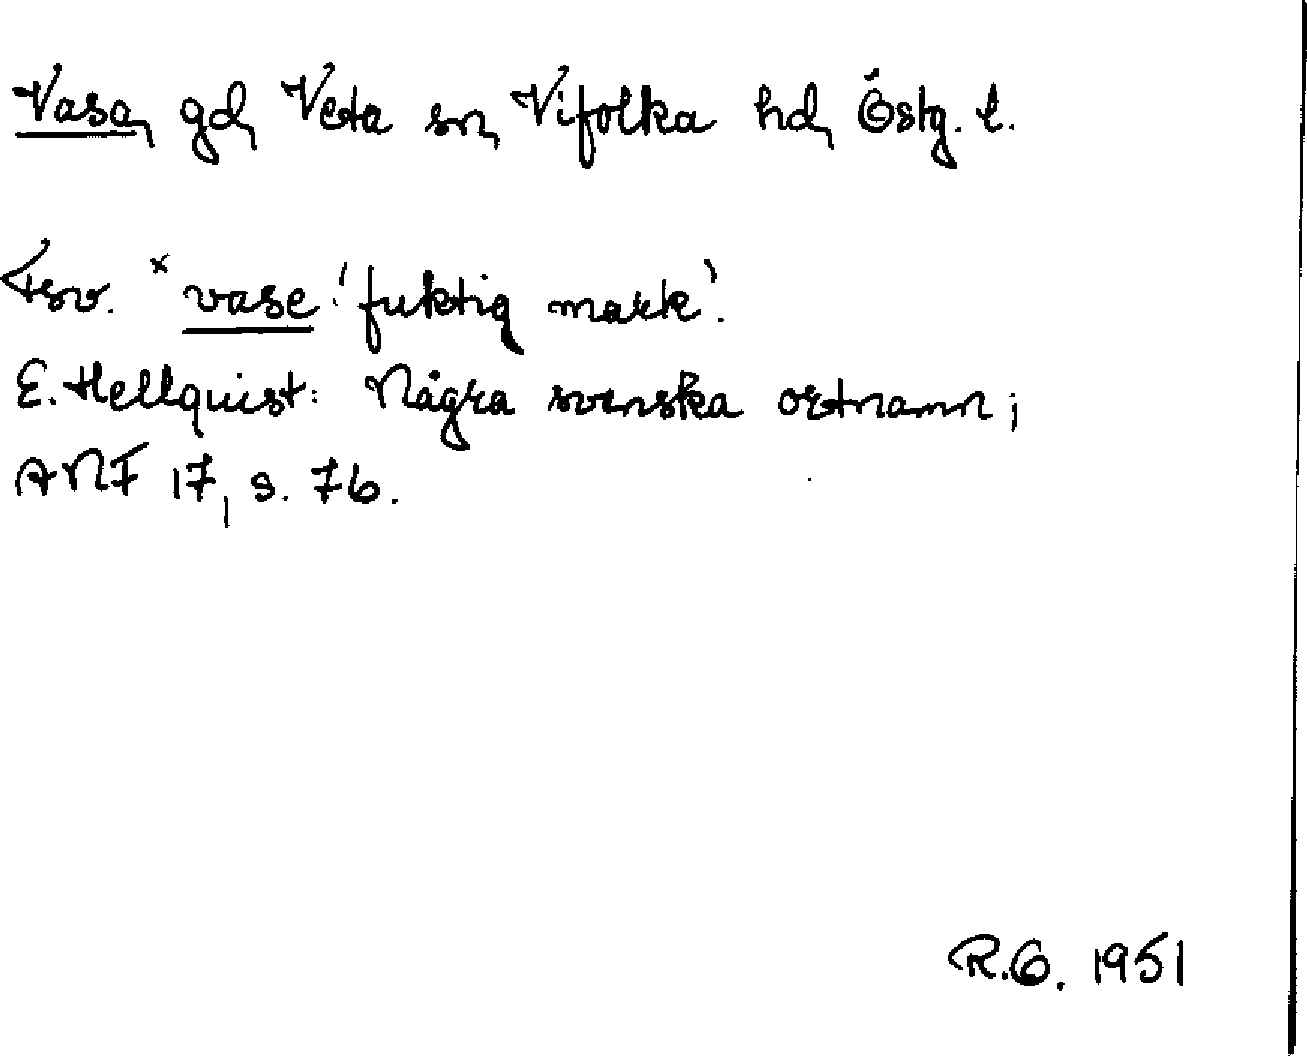 Vasa, gd, Veta sn, Vifolka hd, Östg. l.
Fsv. ˣvase 'fuktig mark'.
E. Hellquist: Några svenska ortnamn;
ANF 17, s. 76.
R.G. 1951